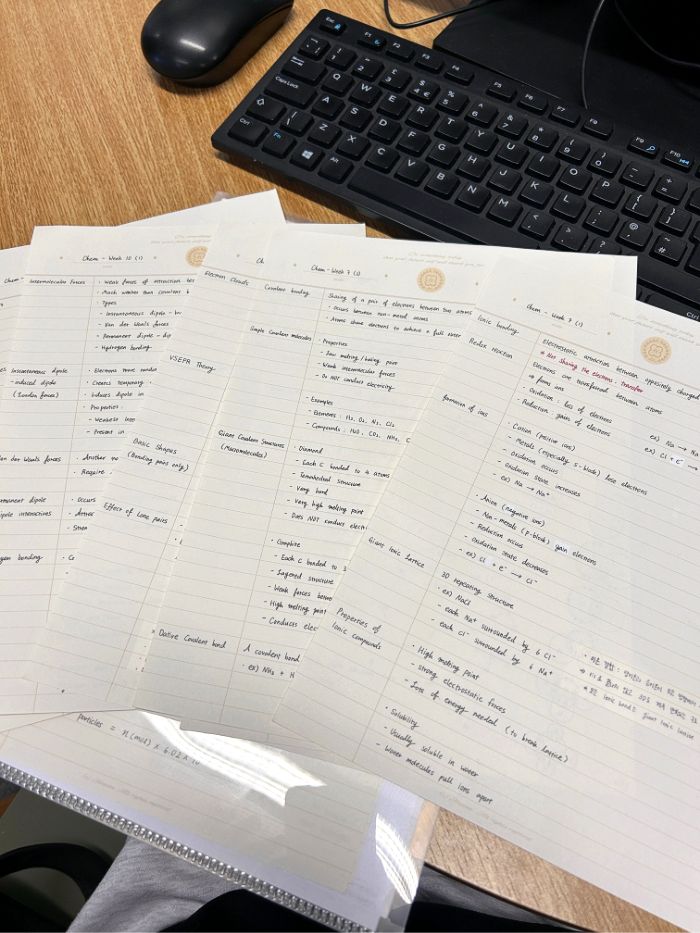 Chem - Week 7 (1)
Ionic bonding
Electrostatic attraction between oppositely charged
* Not sharing the electrons. transfer
Electrons are transferred between atoms
→ forms ions
Redox reaction
- Oxidation : loss of electrons
- Reduction : gain of electrons
ex) Na → Na
ex) Cl + e⁻
formation of ions
• Cation (positive ions)
- Metals (especially s-block) lose electrons
- oxidation occurs
- oxidation state increases
- ex) Na → Na⁺
• Anion (negative ions)
- Non-metals (p-block) gain electrons
- Reduction occurs
- oxidation state decreases
- ex) Cl + e⁻ → Cl⁻
Giant Ionic Lattice
3D repeating structure
• ex) NaCl
- each Na⁺ surrounded by 6 Cl⁻
- each Cl⁻ surrounded by 6 Na⁺
Properties of
Ionic compounds
• High melting point
- strong electrostatic forces
- Lots of energy needed (to break lattice)
• Solubility
- Usually soluble in water
- Water molecules pull ions apart
Chem - Week 7 (2)
Covalent bonding
Sharing of a pair of electrons between two atoms
• occurs between non-metal atoms
• Atoms share electrons to achieve a full outer
Simple Covalent molecules
Properties
- Low melting/boiling point
- Weak intermolecular forces
- Do NOT conduct electricity
• Examples
- Elements : H₂, O₂, N₂, Cl₂
- Compounds : H₂O, CO₂, NH₃, C
Giant Covalent Structures
(Macromolecules)
• Diamond
- Each C bonded to 4 atoms
- Tetrahedral structure
- Very hard
- Very high melting point
- Does NOT conduct elect
• Graphite
- Each C bonded to 3
- Layered structure
- Weak forces betwe
- High melting point
- Conducts elec
* Dative Covalent bond
A covalent bond
• ex) NH₃ + H
Ch
Electron Clouds
VSEPR Theory
Basic Shapes
(Bonding pairs only)
Effect of Lone pairs
Chem - Week 10 (1)
Intermolecular Forces
• Weak forces of attraction bet
• Much weaker than covalent b
• Types
- Instantaneous dipole -
- Van der Waals forces
- Permanent dipole - dip
- Hydrogen bonding
Instantaneous dipole
- induced dipole
(London forces)
• Electrons move
• Creates temporary
• Induces dipole in
• Properties
- Weakest
- Present in
an der Waals forces
• Another
• Require
rmanent dipole
ipole interactions
• Occurs
• Attrac
• Stron
gen bonding
Chem
particles = n(mol) × 6.02 ×
Esc
F1
F2
F3
F4
F5
F6
F7
F8
F9
F10
Q W E R T Y U I O P
Caps Lock
A S D F G H J K L
Z X C V B N M
Ctrl
Fn
Alt
Ctrl